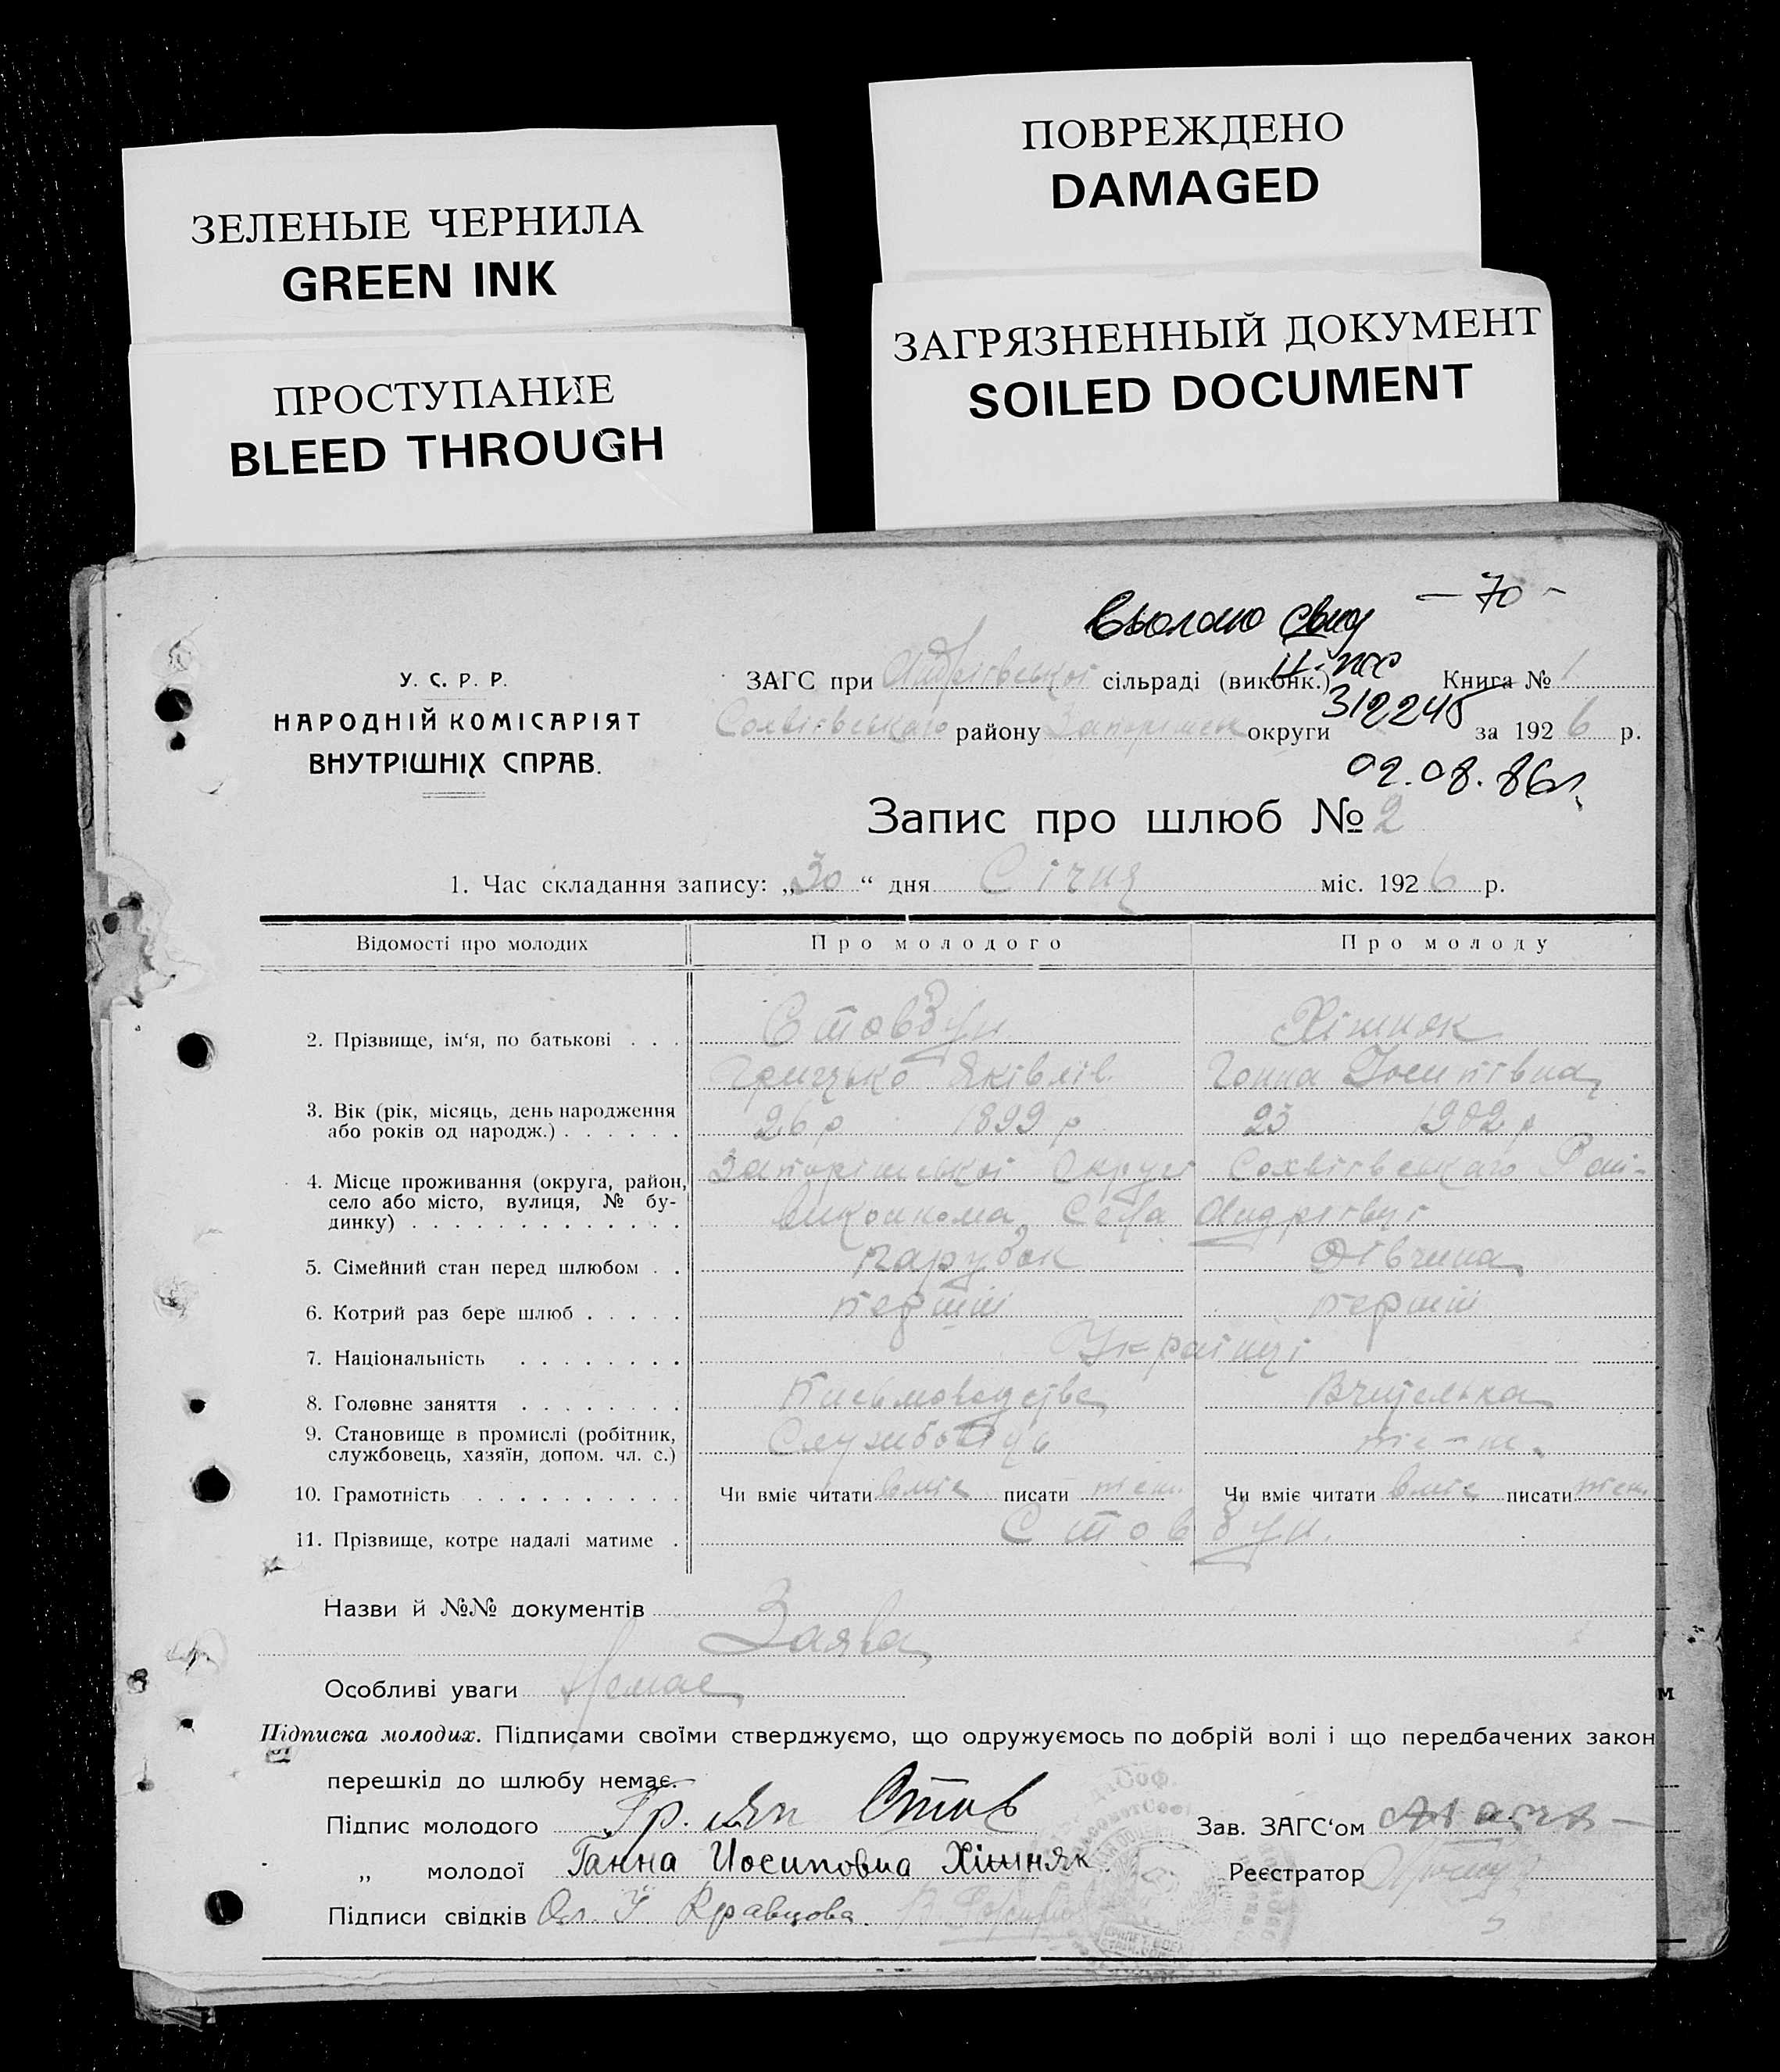 ПОВРЕЖДЕНО
DAMAGED
ЗЕЛЕНЫЕ ЧЕРНИЛА
GREEN INK
ЗАГРЯЗНЕННЫЙ ДОКУМЕНТ
SOILED DOCUMENT
ПРОСТУПАНИЕ
BLEED THROUGH
— 70 -
У. С. Р. Р.
НАРОДНІЙ КОМІСАРІЯТ
ВНУТРІШНІХ СПРАВ.
ЗАГС при Андріївської сільраді (виконк.) Книга № 1
району округи за 1926 р.
312245
02.08.86
Запис про шлюб № 2
1. Час складання запису: „30“ дня Січня міс. 1926 р.
Відомості про молодих Про молодого Про молоду
2. Прізвище, ім‘я, по батькові . . . Стовбун Хішняк
Грицько Яковлів. Ганна Іосипівна
3. Вік (рік, місяць, день народження
або років од народж.) . . . . . . 26 р 1899 р 23 1902 р
4. Місце проживання (округа, район, Запоріжської Округи
село або місто, вулиця, № бу-
динку) . . . . . . . . . . . . . виконкома Села Андріївці
5. Сімейний стан перед шлюбом . . парубок Дівчина
6. Котрий раз бере шлюб . . . . . перший перший
7. Національність . . . . . . . . Українці
8. Головне заняття . . . . . . . . Письмоводство Вчителька
9. Становище в промислі (робітник,
службовець, хазяїн, допом. чл. с.) Службовець
10. Грамотність . . . . . . . . . . Чи вміє читати вміє писати теж. Чи вміє читати вміє писати теж.
11. Прізвище, котре надалі матиме . Стовбун.
Назви й №№ документів
Заява
Особливі уваги Немає
Підписка молодих. Підписами своїми стверджуємо, що одружуємось по добрій волі і що передбачених закон
м
перешкід до шлюбу немає.
Підпис молодого Гр. Як Стов Зав. ЗАГС‘ом
„ молодої Ганна Иосиповна Хішняк. Реєстратор
Підписи свідків Ол. Кравцова.